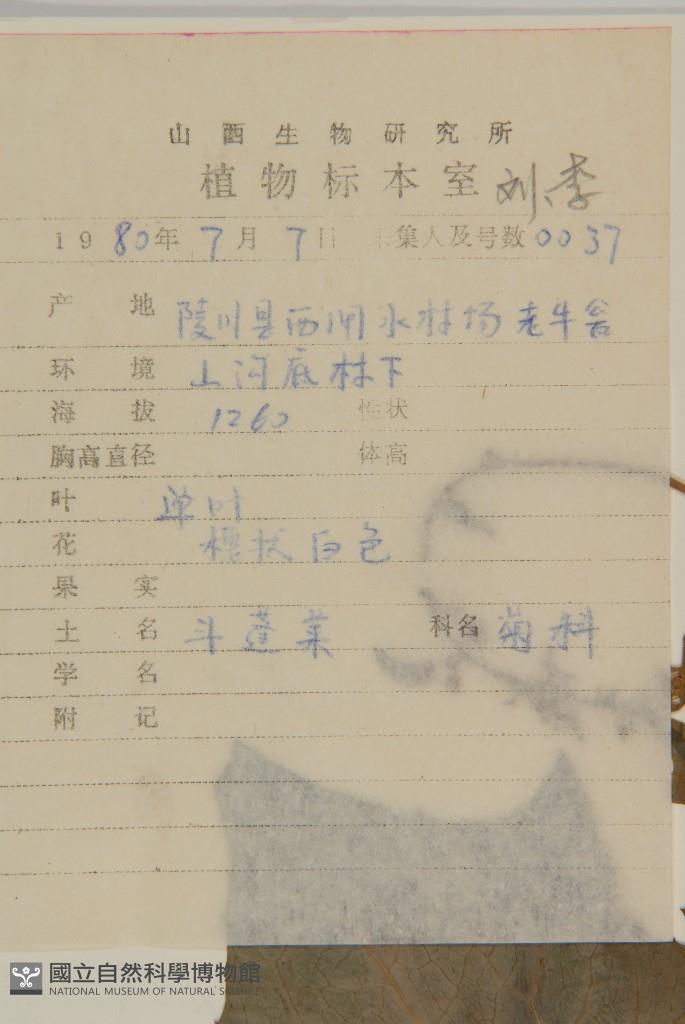 山西生物研究所
植物标本室 刘、李
1980年7月7日 采集人及号数0037
产地 陵川县西闸水林场老牛
环境 山沟底林下
海拔 1260 性状
胸高直径 体高
叶 单叶
花 穗状白色
果实
土名 斗蓬菜 科名 菊科
学名
附记
國立自然科學博物館
NATIONAL MUSEUM OF NATURAL SCIENCE